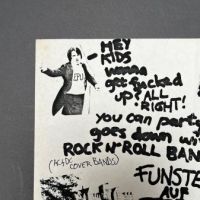 HEY
KIDS
wanna
get fucked
up? ALL
RIGHT!
you can party
goes down wi
ROCK N' ROLL BAN
(AC/DC COVER BANDS)
FUNSTE
AUF